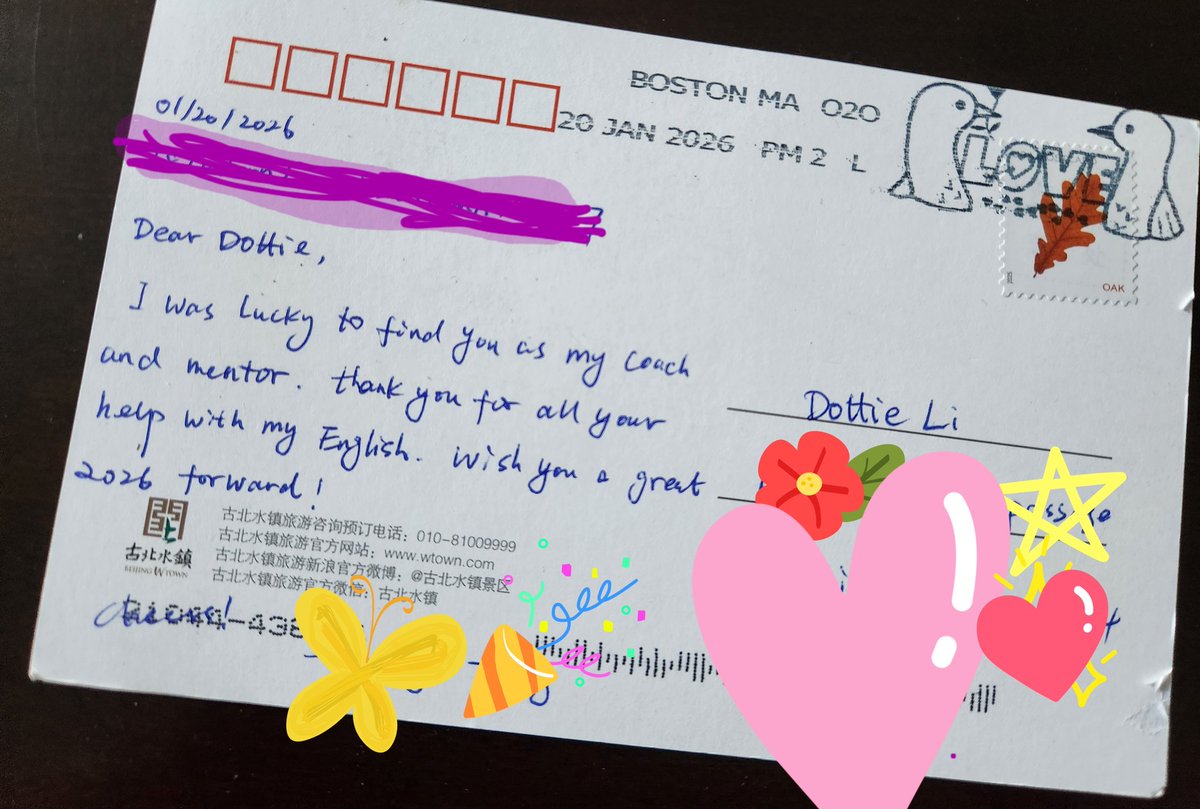 BOSTON MA 020
20 JAN 2026 PM 2 L
LOVE
OAK
01/20/2026
Dear Dottie,
I was lucky to find you as my coach
and mentor. Thank you for all your
help with my English. Wish you a great
2026 forward!
Dottie Li
古北水镇旅游咨询预订电话：010-81009999
古北水镇旅游官方网站：www.wtown.com
古北水镇旅游新浪官方微博：@古北水镇景区
古北水镇旅游官方微信：古北水镇
古北水鎮
BEIJING WTOWN